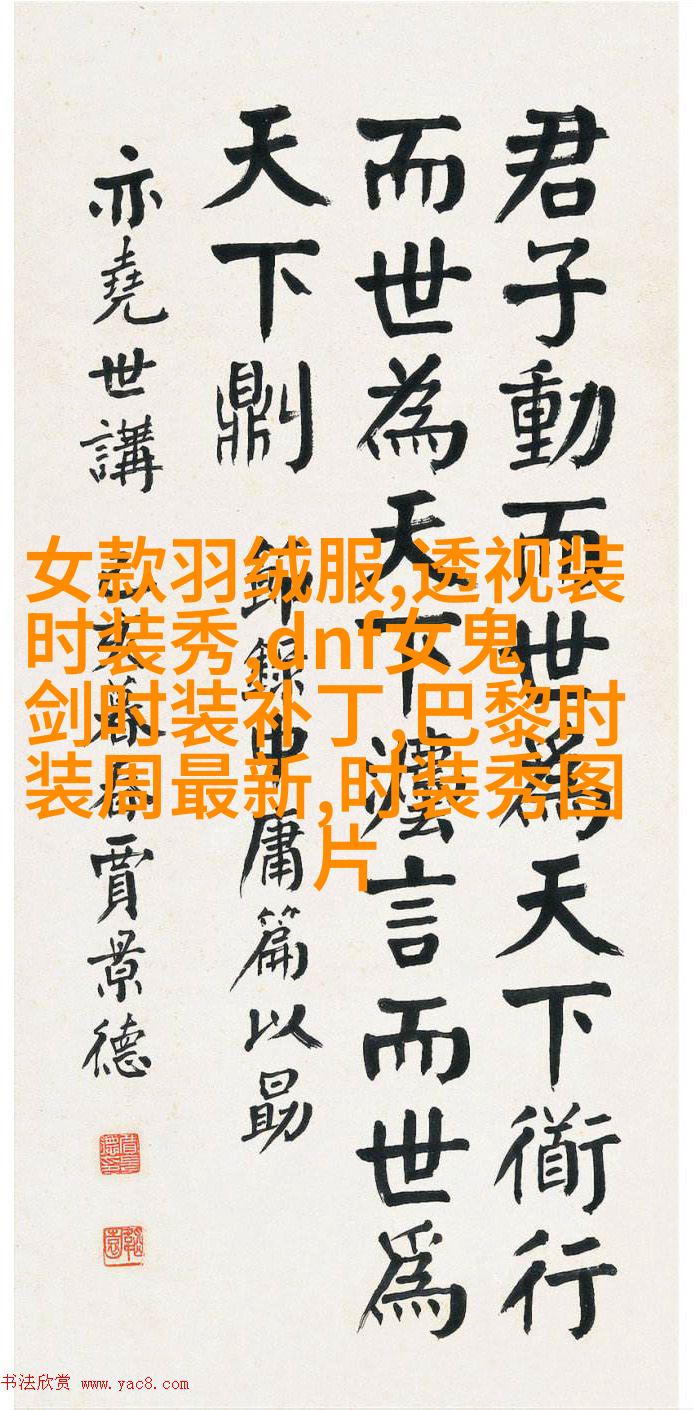 君子動而世為天下衜行
而世為天下灋言而世為
天下𠟭
節錄中庸篇以勗
亦堯世講 暮春賈景德
女款羽绒服,透视装
时装秀,dnf女鬼
剑时装补丁,巴黎时
装周最新,时装秀图
片
书法欣赏 www.yac8.com